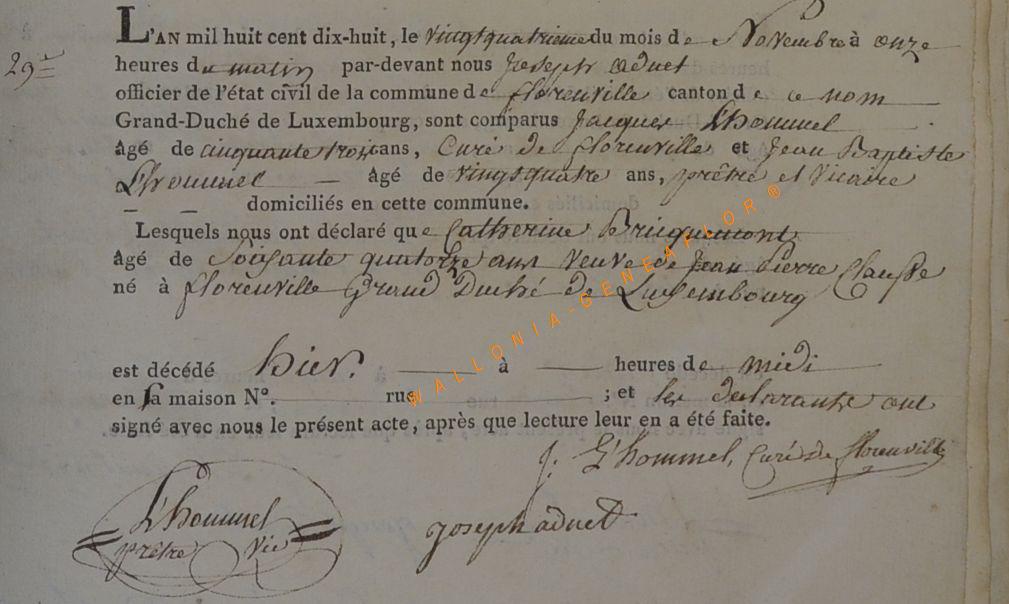 29e
L'AN mil huit cent dix-huit, le vingtquatrieme du mois de Novembre à onze
heures du matin par-devant nous Joseph aduet
officier de l'état civil de la commune de florenville canton de ce nom
Grand-Duché de Luxembourg, sont comparus Jacques L'hommel
âgé de cinquante trois ans, Curé de florenville et Jean Baptiste
L'hommel — âgé de vingtquatre ans, prêtre et vicaire
— — domiciliés en cette commune.
Lesquels nous ont déclaré que Catherine Bricquemont
âgé de Soisante quatorze ans veuve de Jean Pierre Clausse
né à florenville Grand Duché de Luxembourg
est décédé hier. — à — heures de midi
en sa maison N°. rue ; et les declarants ont
signé avec nous le présent acte, après que lecture leur en a été faite.
J. L'hommel, Curé de florenville
L'hommel
prêtre vic
joseph aduet
WALLONIA-GENEAFLOR®